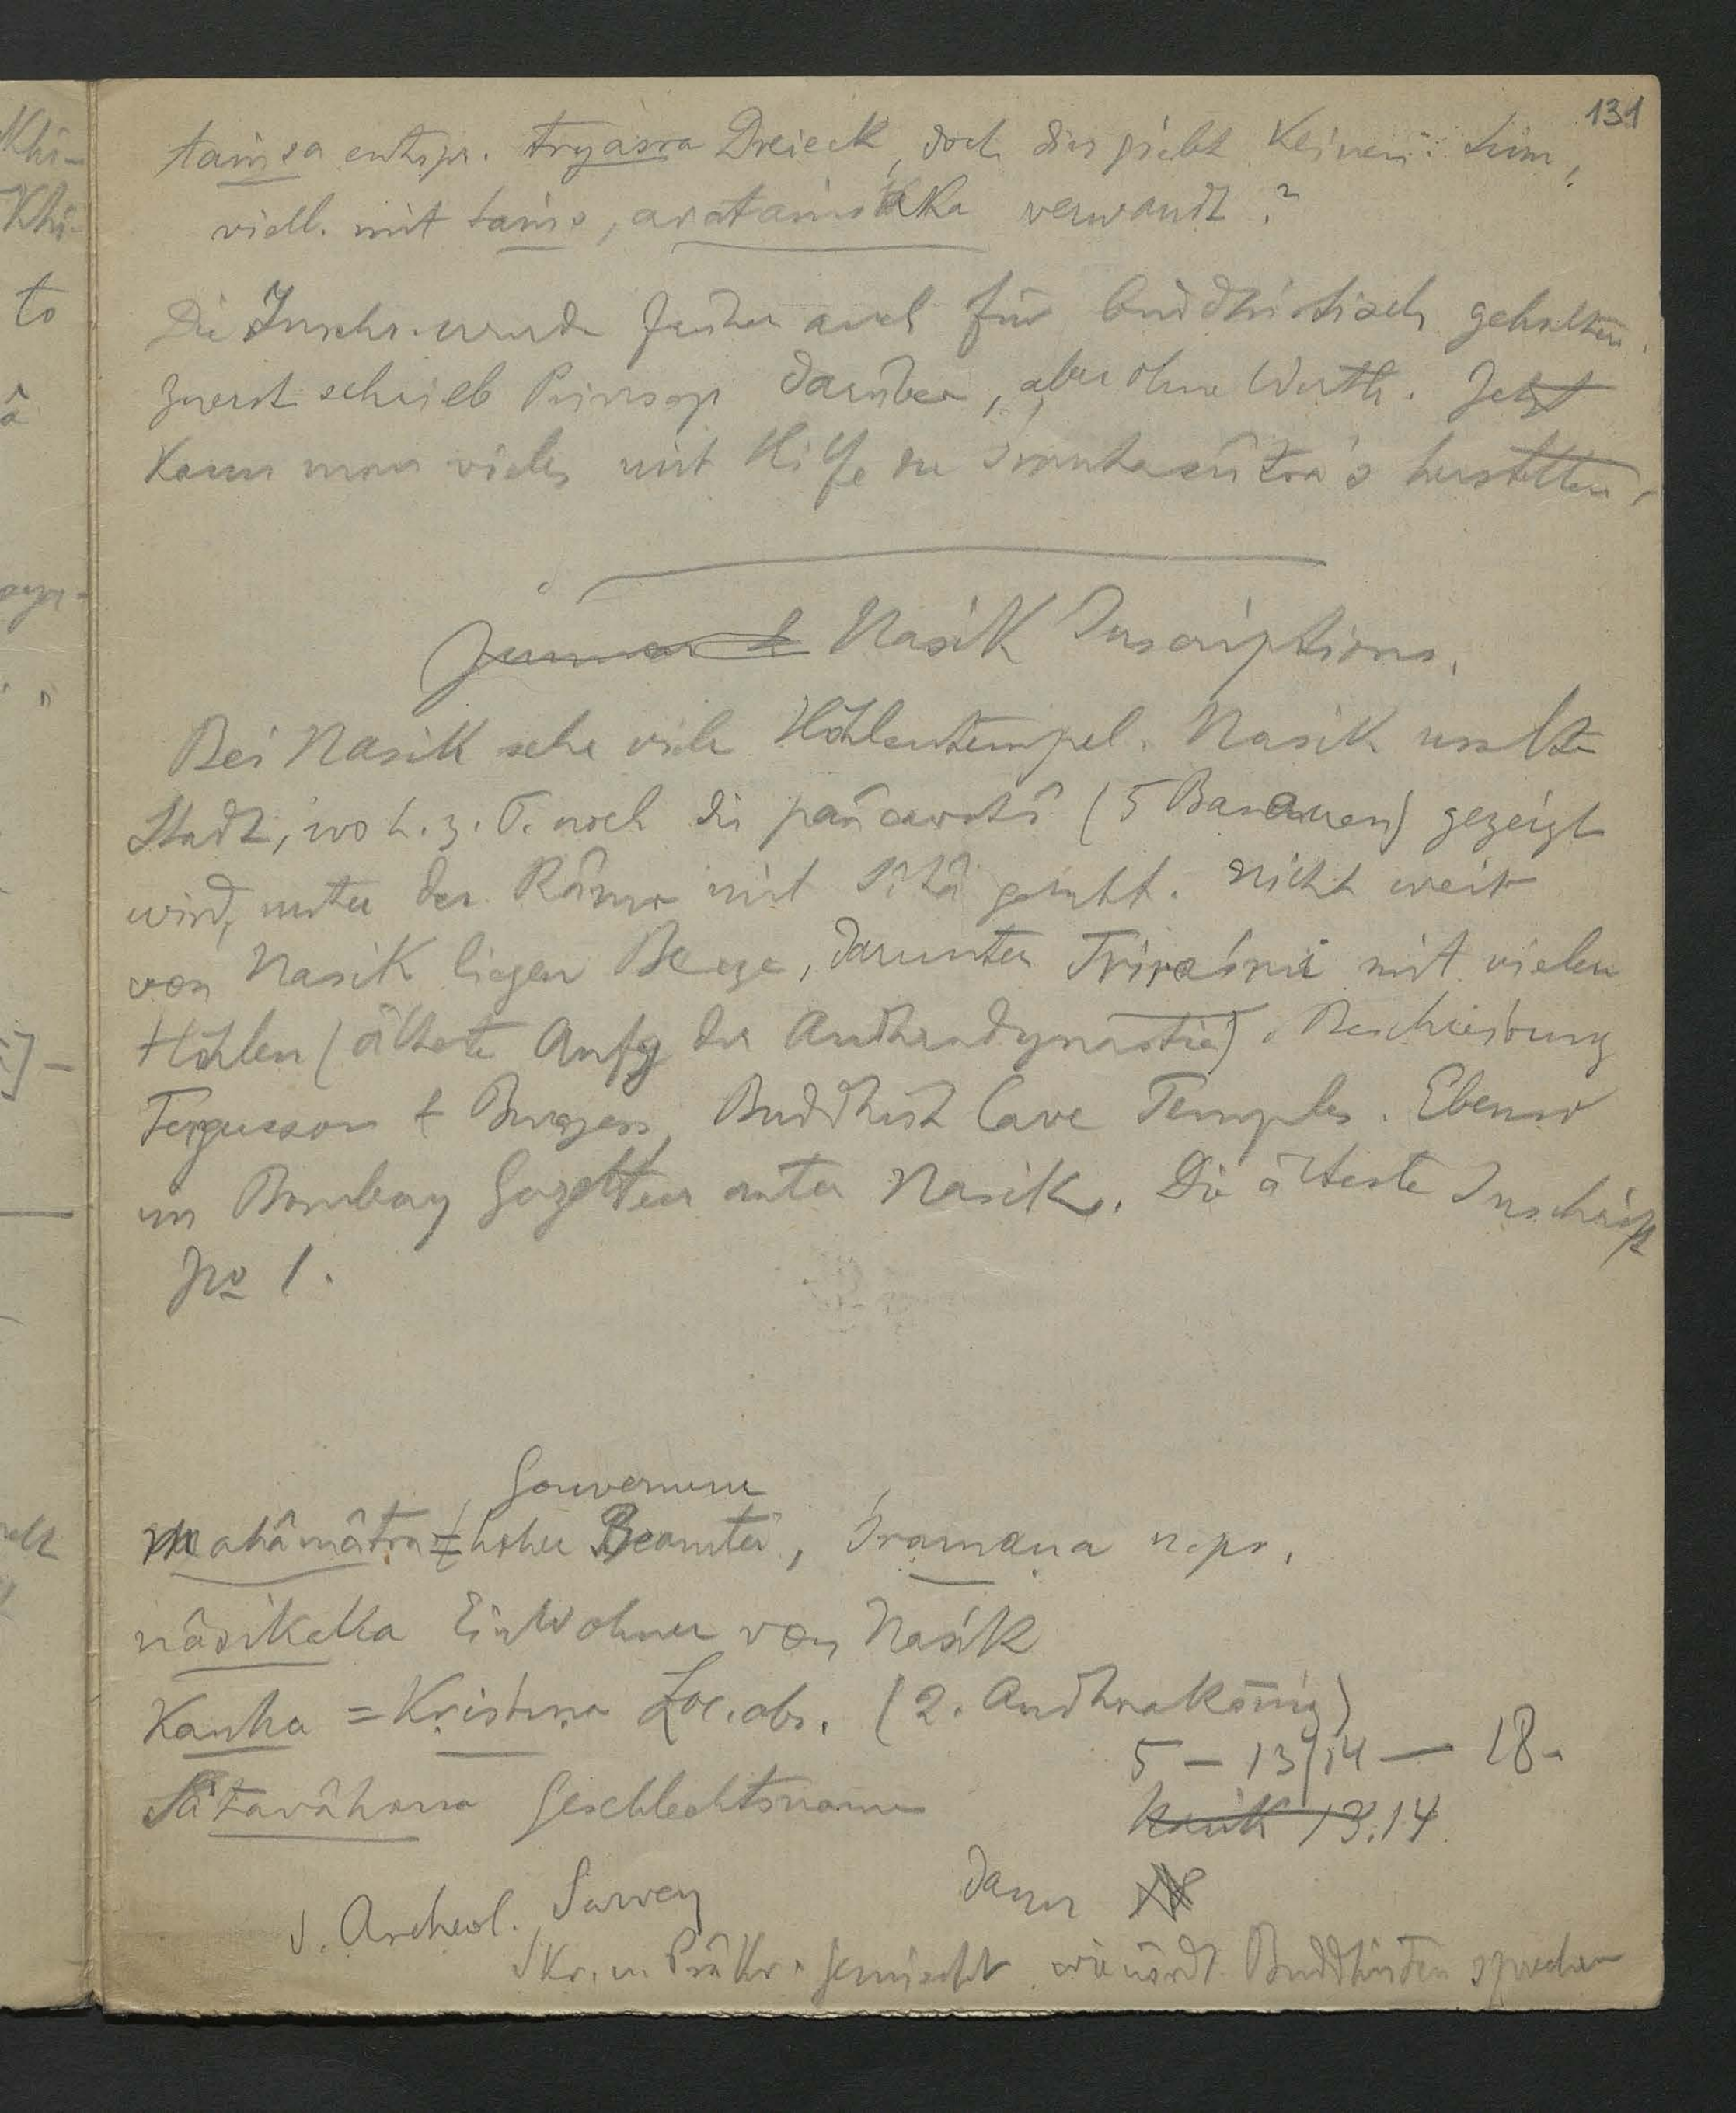 131
taṁsa entspr. tryaśra Dreieck, doch dies giebt keinen Sinn,
viell. mit taṁs, avataṁsaka verwandt?
Die Inschr. wurde früher auch für buddhistisch gehalten.
Zuerst schrieb Prinsep darüber, aber ohne Werth. Jetzt
kann man vieles mit Hilfe der Śrautasûtra's herstellen.
Junnar & Nasik Inscriptions.
Bei Nasik sehr viele Höhlentempel. Nasik uralte
Stadt, wo h. z. T. noch die pañcavatî (5 Bananen) gezeigt
wird, unter der Râma mit Sîtâ geruht. Nicht weit
von Nasik liegen Berge, darunter Triraśmi mit vielen
Höhlen (älteste Anfg der Andhradynastie). Beschreibung
Fergusson & Burgess, Buddhist Cave Temples. Ebenso
im Bombay Gazetteer unter Nasik. Die älteste Inschrift
No 1.
Gouverneur
mahâmâtra = hoher Beamter, Śramaṇa n. pr.
nâsikaka Einwohner von Nasik
Kaṇha = Kṛishṇa Loc. abs. (2. Andhrakönig)
5 – 13/14 – 18.
Sâtavâhana Geschlechtsname
Nasik 13.14
dann
s. Archeol. Survey
Skr. u. Prâkr. gemischt wie nördl. Buddhisten sprechen
Khi-
Khi-
to
â